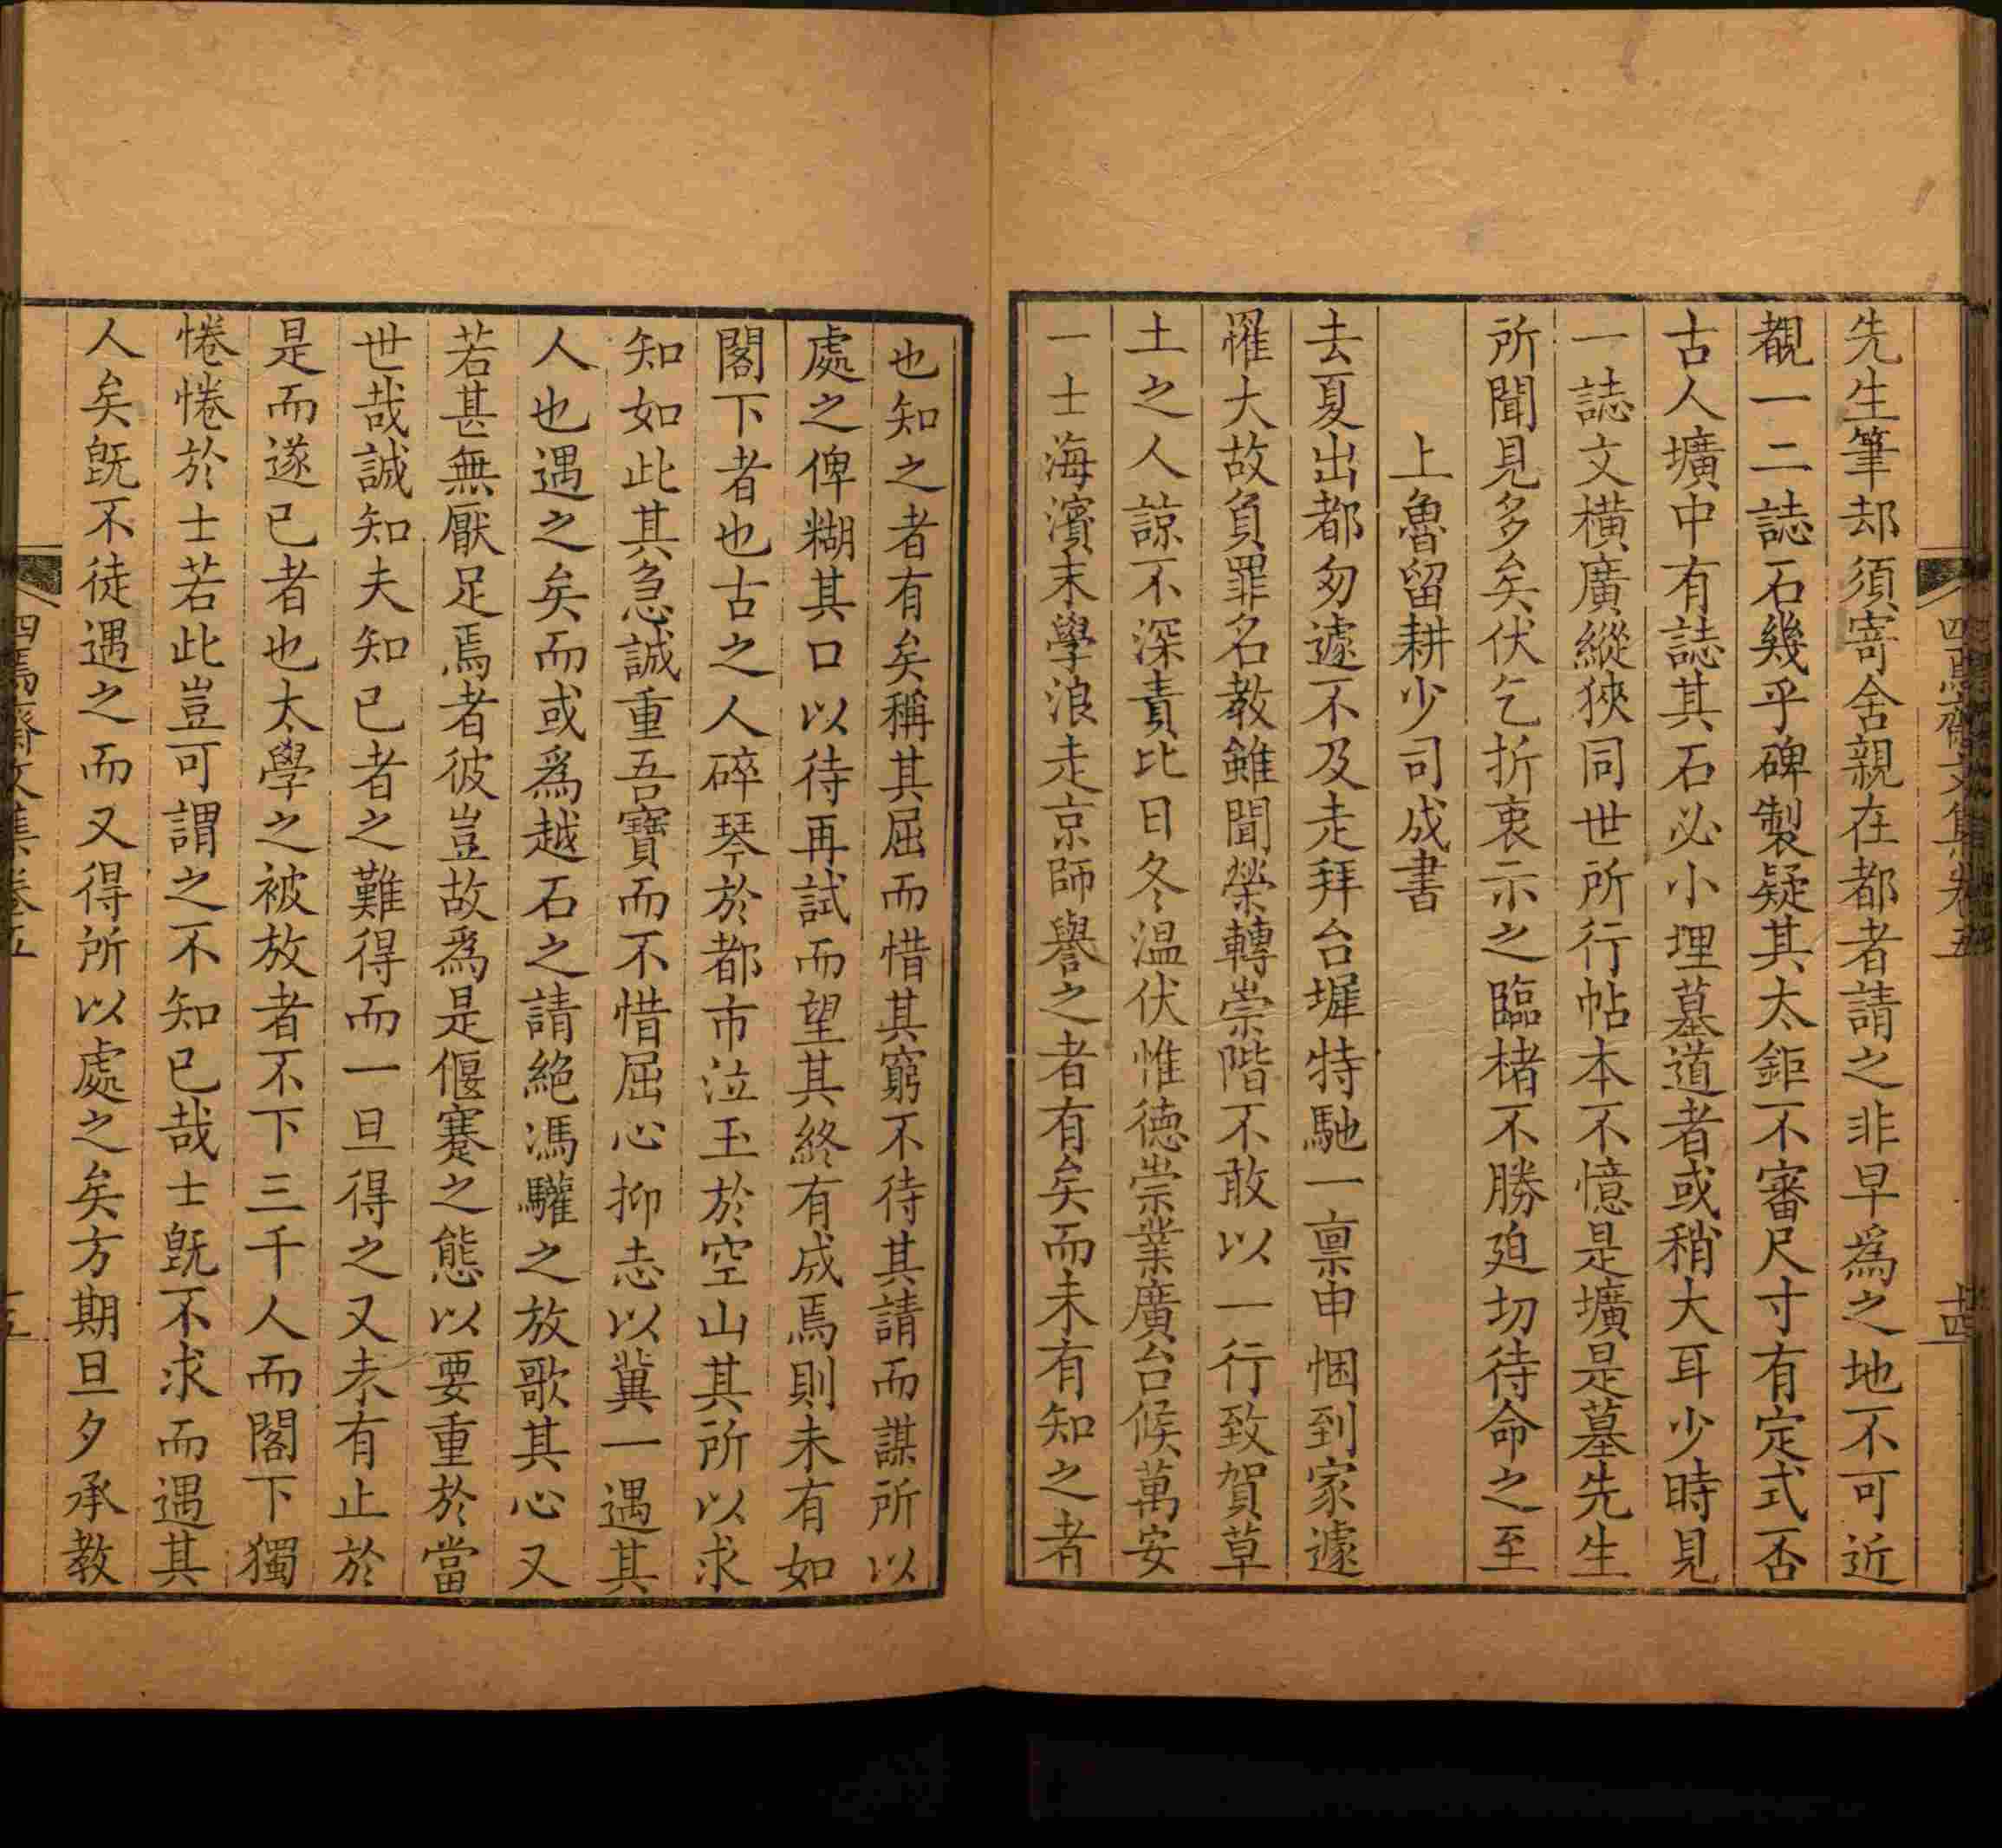 先生筆却須寄舍親在都者請之非早爲之地不可近
覩一二誌石幾乎碑製疑其太鉅不審尺寸有定式否
古人壙中有誌其石必小埋墓道者或稍大耳少時見
一誌文橫廣縱狹同世所行帖本不憶是壙是墓先生
所聞見多矣伏乞折衷示之臨楮不勝廹切待命之至
上魯留耕少司成書
去夏出都匆遽不及走拜台墀特馳一禀申悃到家遽
罹大故負罪名教雖聞榮轉崇階不敢以一行致賀草
土之人諒不深責比日冬温伏惟德崇業廣台候萬安
一士海濱末學浪走京師譽之者有矣而未有知之者
也知之者有矣稱其屈而惜其窮不待其請而謀所以
處之俾糊其口以待再試而望其終有成焉則未有如
閣下者也古之人碎琴於都市泣玉於空山其所以求
知如此其急誠重吾寶而不惜屈心抑志以冀一遇其
人也遇之矣而或爲越石之請絕馮驩之放歌其心又
若甚無厭足焉者彼豈故爲是偃蹇之態以要重於當
世哉誠知夫知已者之難得而一旦得之又未有止於
是而遂已者也太學之被放者不下三千人而閣下獨
惓惓於士若此豈可謂之不知已哉士旣不求而遇其
人矣旣不徒遇之而又得所以處之矣方期旦夕承教
四焉齋文集卷五